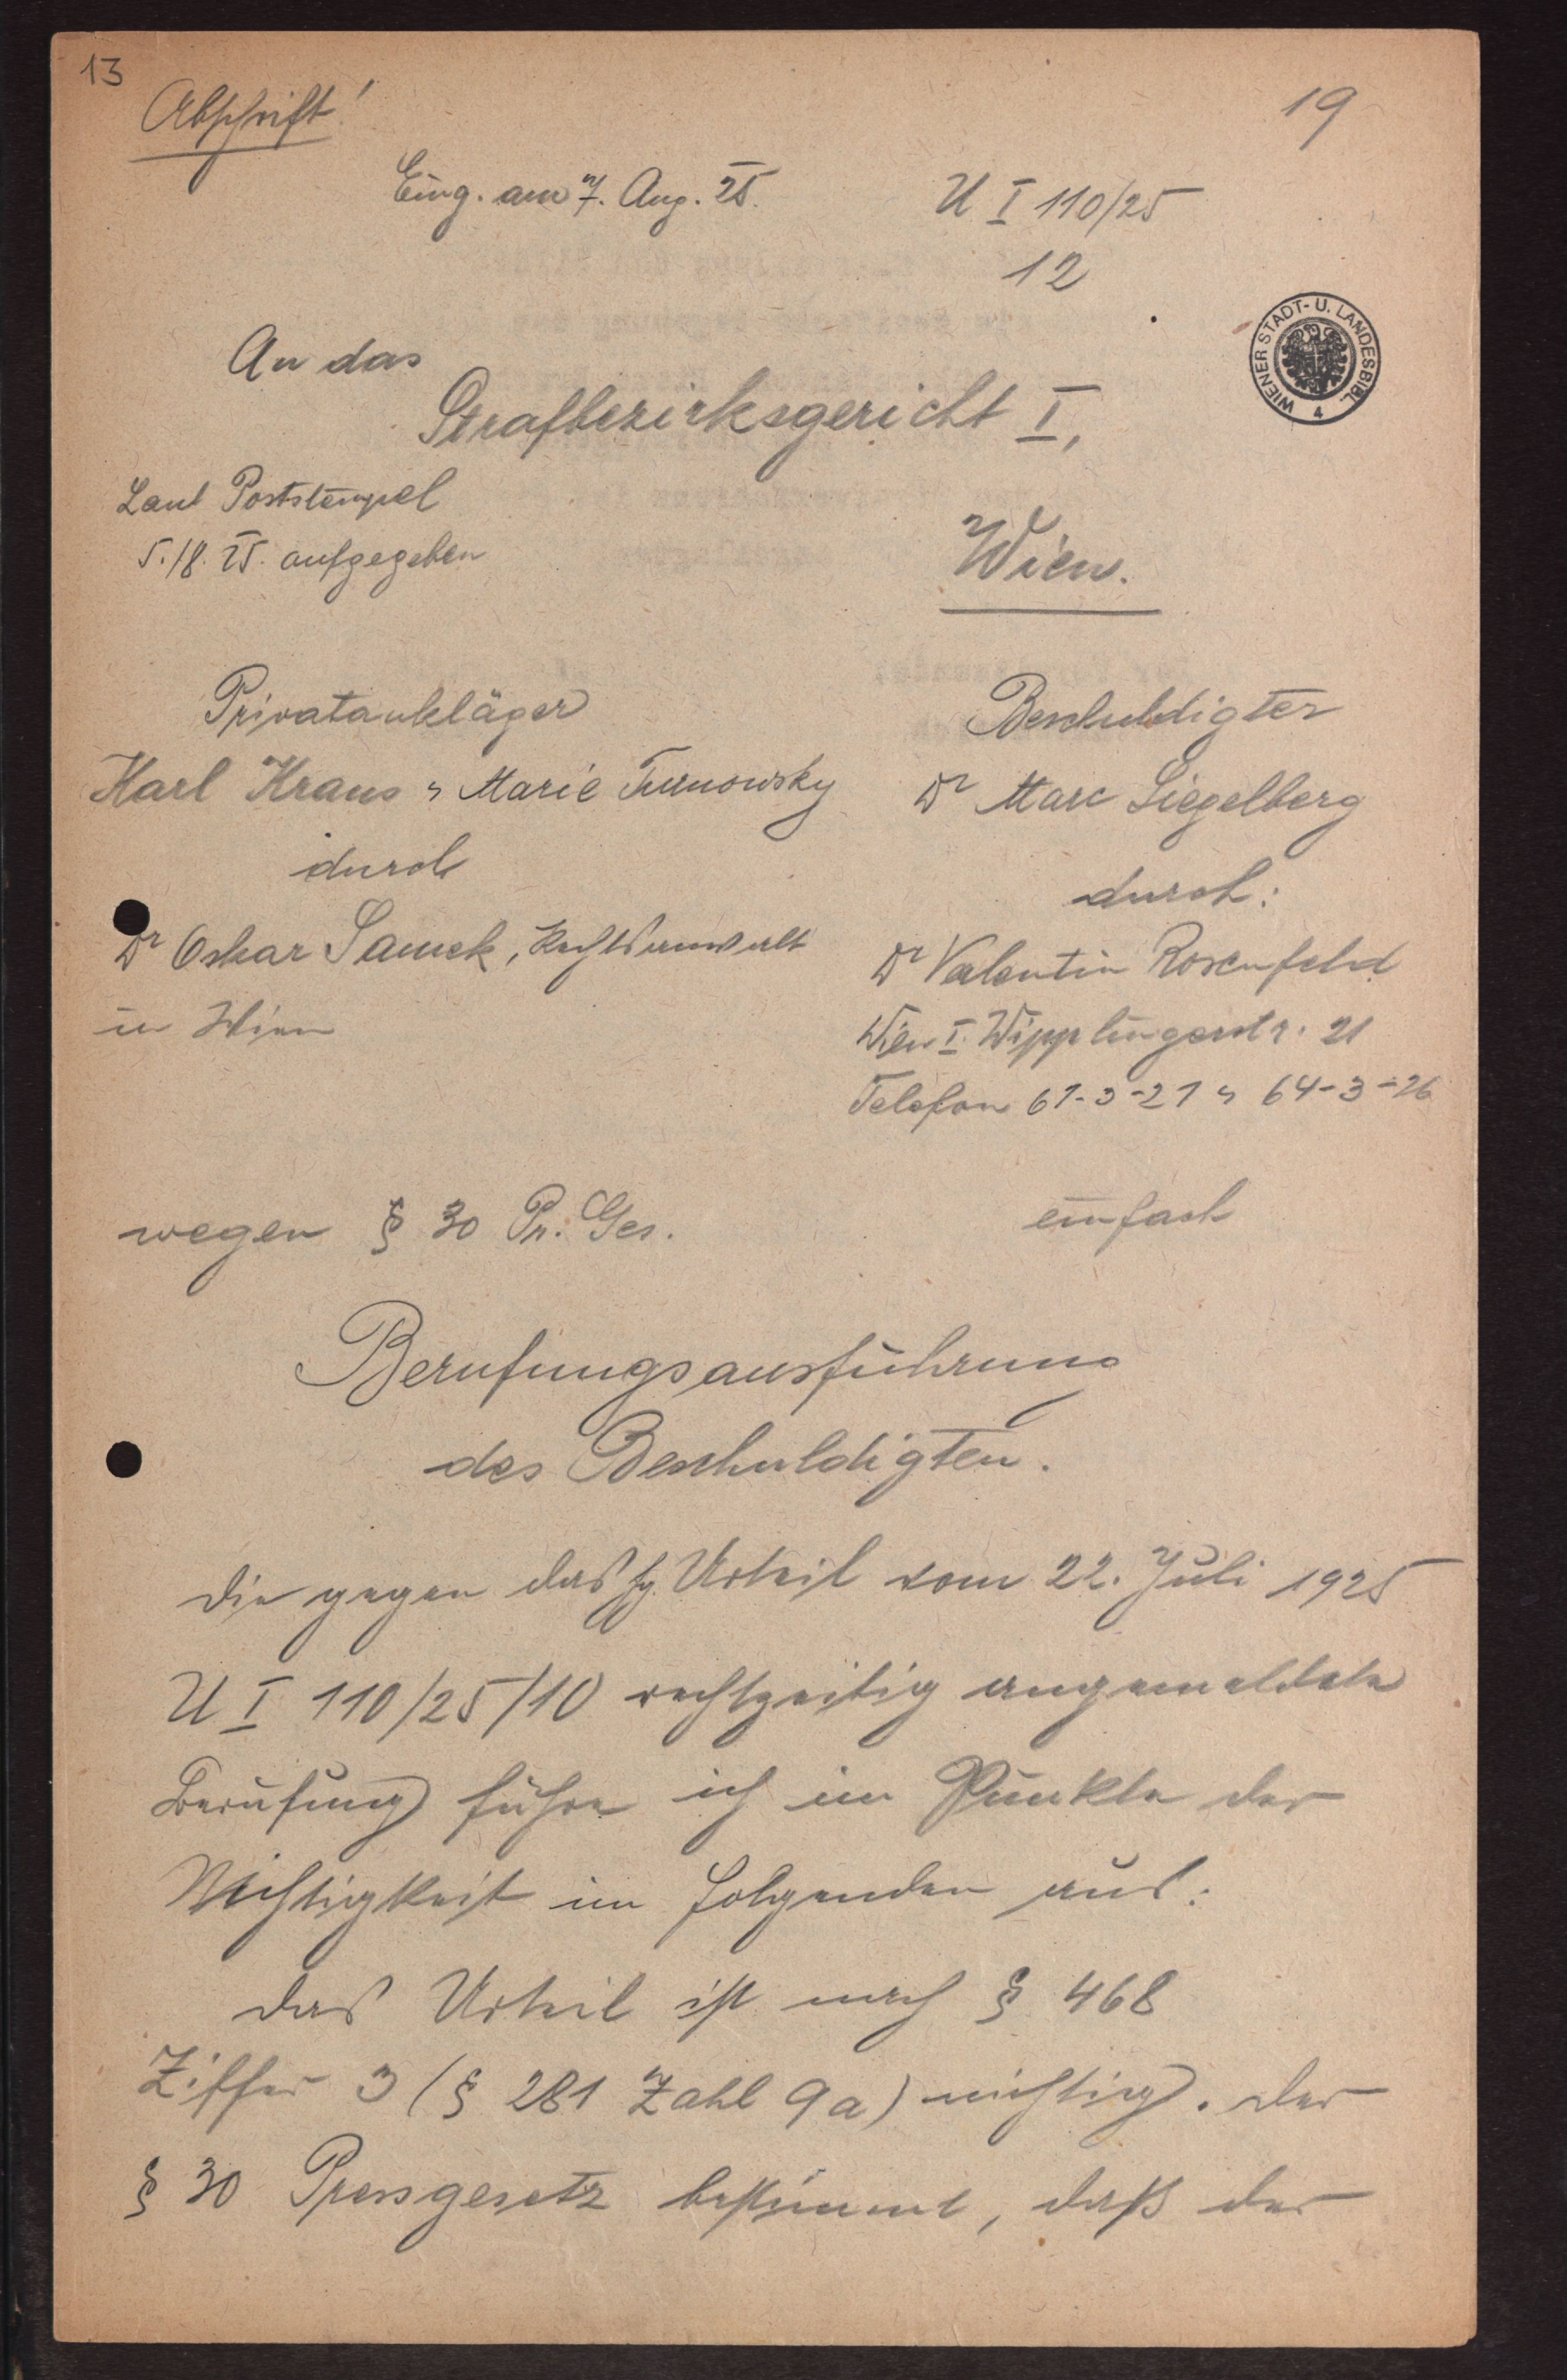 13
19
Abschrift!
Eing. am 7. Aug. 25.
U I 110/25
12
WIENER STADT- U. LANDESBIBL.
4
An das
Strafbezirksgericht I,
Laut Poststempel
5./8. 25. aufgegeben
Wien.
Privatankläger
Karl Kraus u Marie Turnowsky
durch
Dr Oskar Samek, Rechtsanwalt
in Wien
Beschuldigter
Dr Marc Siegelberg
durch:
Dr Valentin Rosenfeld
Wien I. Wipplingerstr. 21
Telefon 61-3-21 u 64-3-26
wegen § 30 Pr. Ges.
einfach
Berufungsausführung
des Beschuldigten.
Die gegen das hg. Urteil vom 22. Juli 1925
U I 110/25/10 rechtzeitig angemeldete
Berufung führe ich im Punkte der
Nichtigkeit im folgenden aus:
Das Urteil ist nach § 468
Ziffer 3 (§ 281 Zahl 9a) nichtig. Der
§ 30 Pressgesetz bestimmt, daß der